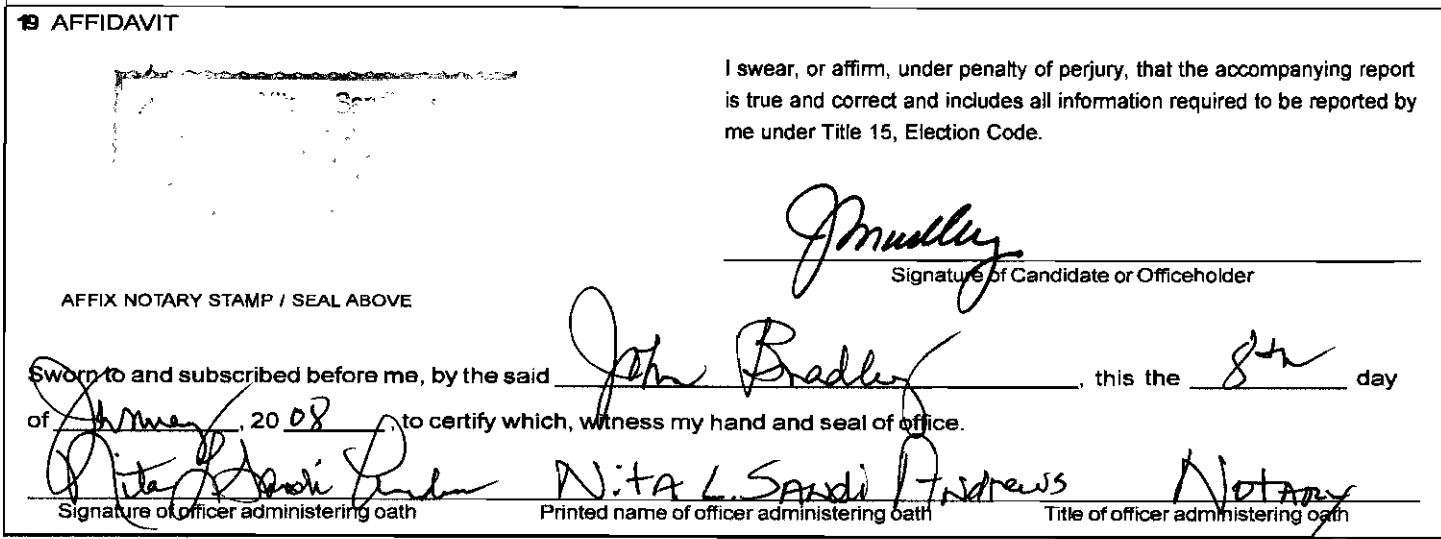 19 AFFIDAVIT
I swear, or affirm, under penalty of perjury, that the accompanying report
is true and correct and includes all information required to be reported by
me under Title 15, Election Code.
Signature of Candidate or Officeholder
AFFIX NOTARY STAMP / SEAL ABOVE
Sworn to and subscribed before me, by the said John Bradley, this the 8th day
of January, 20 08, to certify which, witness my hand and seal of office.
Nita L. Sandi Andrews Notary
Signature of officer administering oath Printed name of officer administering oath Title of officer administering oath